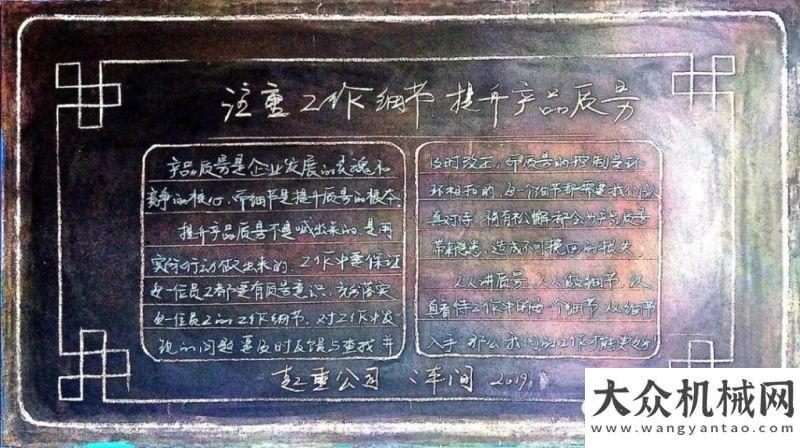 注重工作细节 提升产品质量
产品质量是企业发展的灵魂和
竞争的核心，而细节是提升质量的根本。
提升产品质量不是喊出来的，是用
实际行动做出来的，工作中要保证
每一位员工都要有质量意识，充分落实
每一位员工的工作细节，对工作中发
现的问题要及时反馈与查找并
及时改正，而质量的控制是环
环相扣的，每一个细节都需要我们认
真对待，稍有松懈都会为产品质量
带来隐患，造成不可挽回的损失。
人人讲质量，人人做细节，认
真看待工作中的每一个细节，从细节
入手，那么我们的工作才能更好！
起重公司 车间 2019.
大众机械网
www.wangyantao.com